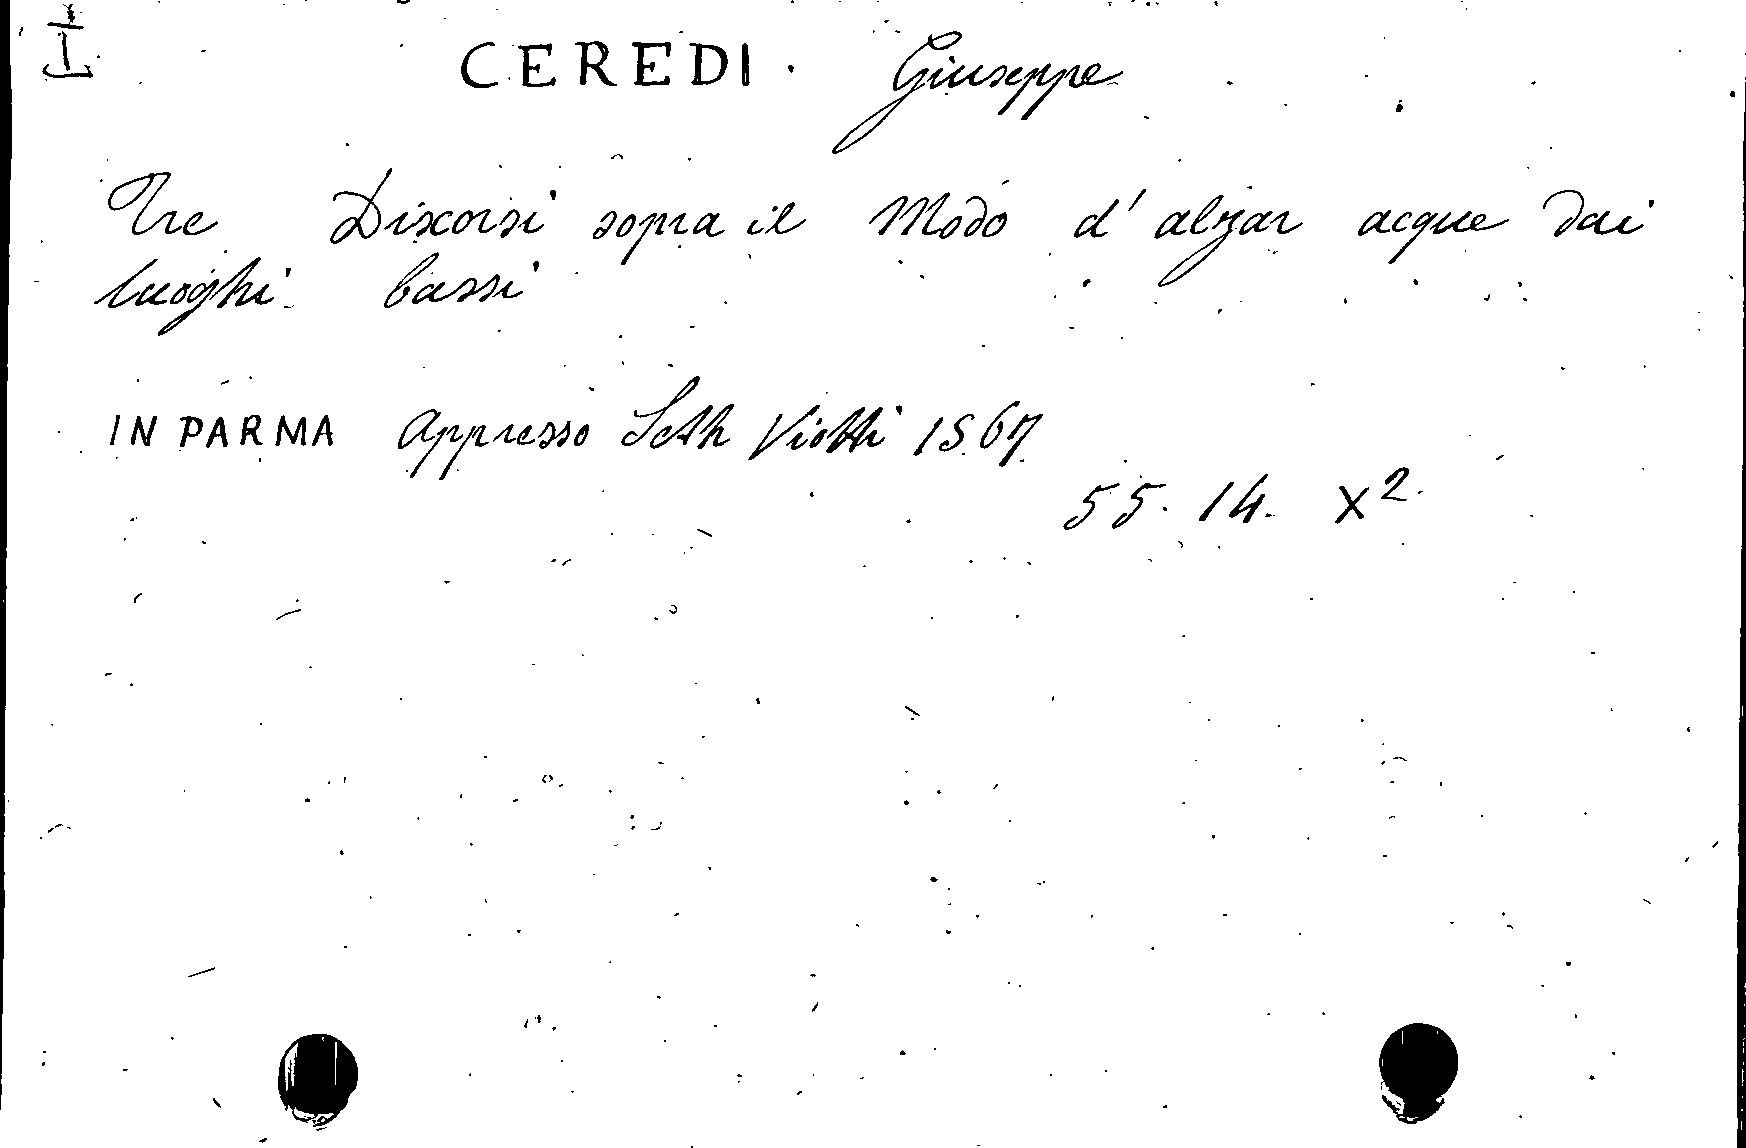 I
CEREDI. Giuseppe
Tre Discorsi sopra il Modo d'alzar acque dai
luoghi bassi
IN PARMA Appresso Seth Viotti 1567
55. 14. X²